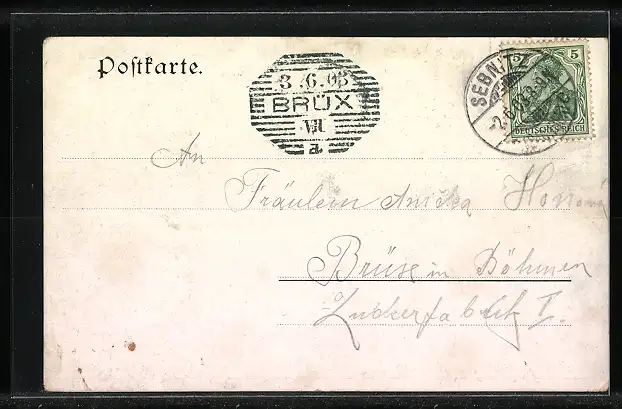 Postkarte.
3.6.03
BRÜX
VII
a.
SEBNITZ
5 5
DEUTSCHES REICH
An
Fräulein
Brüx in Böhmen
Zuckerfabrik I.